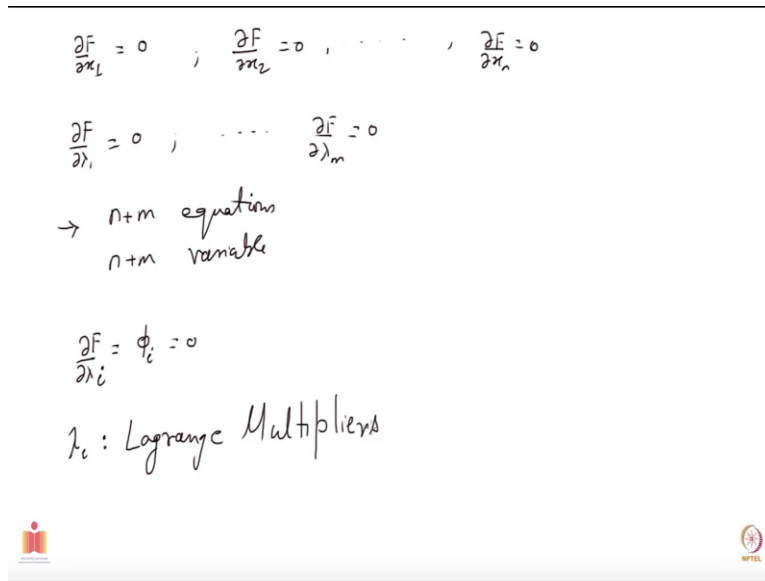 ∂F/∂x₁ = 0 ; ∂F/∂x₂ = 0 , ..... , ∂F/∂xₙ = 0
∂F/∂λ₁ = 0 ; .... ∂F/∂λₘ = 0
→ n+m equations
n+m variable
∂F/∂λᵢ = ϕᵢ = 0
λᵢ : Lagrange Multipliers
NPTEL